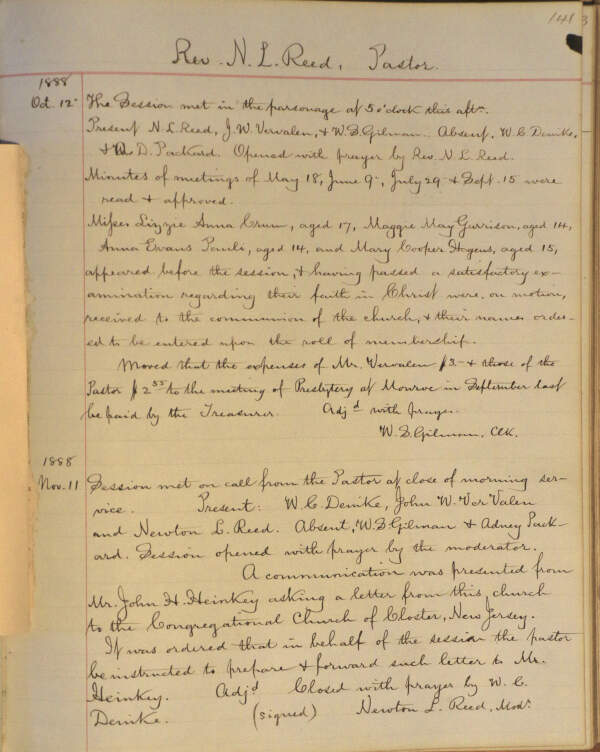 141 3
Rev. N. L. Reed, Pastor.
1888
Oct. 12 The Session met in the parsonage at 5 o'clock this aftn.
Present N. L. Reed, J. W. Vervalen, & W. S. Gilman. Absent, W. C. Demke,
& D. Packard. Opened with prayer by Rev. N. L. Reed.
Minutes of meetings of May 18, June 9, July 29 & Sept. 15 were
read & approved.
Misses Lizzie Anna Crum, aged 17, Maggie May Garrison, aged 14,
Anna Evans Pauli, aged 14, and Mary Cooper Hogens, aged 15,
appeared before the session, & having passed a satisfactory ex-
amination regarding their faith in Christ were, on motion,
received to the communion of the church, & their names order-
ed to be entered upon the roll of membership.
Moved that the expenses of Mr. Vervalen $3.- & those of the
Pastor $2.55 to the meeting of Presbytery at Monroe in September last
be paid by the Treasurer. Adjd with prayer.
W. S. Gilman, Clk.
1888
Nov. 11 Session met on call from the Pastor at close of morning ser-
vice. Present: W. C. Demke, John W. Ver Valen
and Newton L. Reed. Absent, W. S. Gilman & Adney Pack-
ard. Session opened with prayer by the moderator.
A communication was presented from
Mr. John H. Heinkey asking a letter from this church
to the Congregational Church of Closter, New Jersey.
It was ordered that in behalf of the session the pastor
be instructed to prepare & forward such letter to Mr.
Heinkey. Adjd Closed with prayer by W. C.
Demke. (signed) Newton L. Reed, Modr.